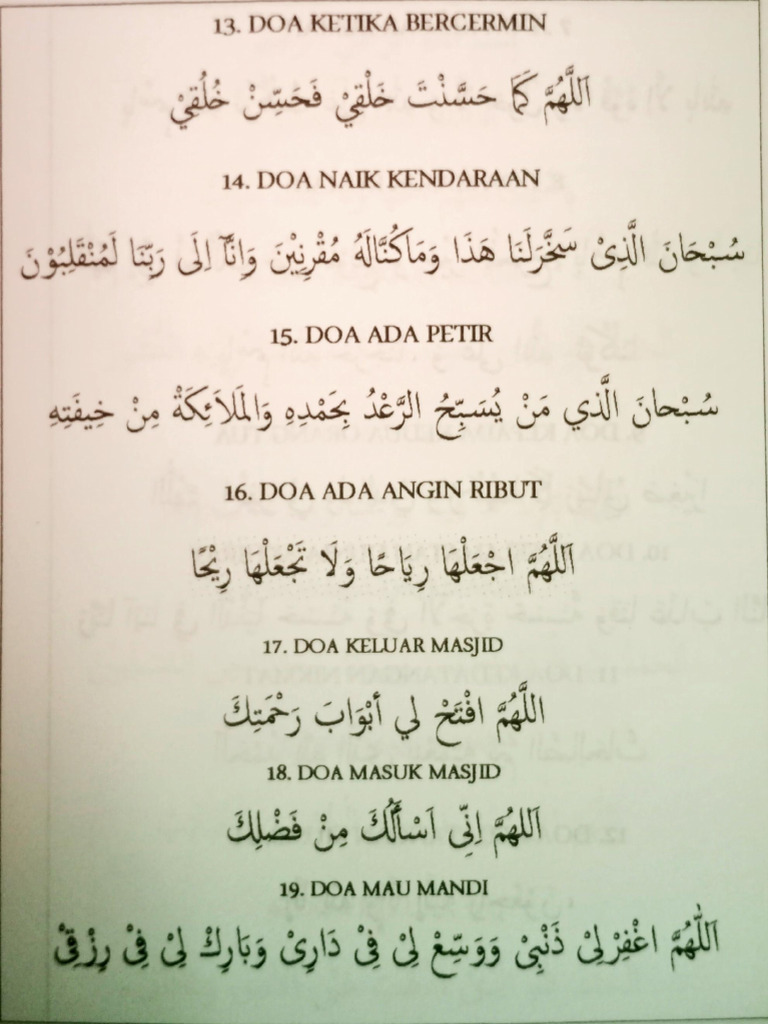 13. DOA KETIKA BERCERMIN
اَللَّهُمَّ كَمَا حَسَّنْتَ خَلْقِيْ فَحَسِّنْ خُلُقِيْ
14. DOA NAIK KENDARAAN
سُبْحَانَ الَّذِىْ سَخَّرَلَنَا هَذَا وَمَاكُنَّالَهُ مُقْرِنِيْنَ وَاِنَّآ اِلَى رَبِّنَا لَمُنْقَلِبُوْنَ
15. DOA ADA PETIR
سُبْحانَ الَّذي مَنْ يُسَبِّحُ الرَّعْدُ بِحَمْدِهِ وَالمَلاَئِكَةْ مِنْ خِيفَتِهِ
16. DOA ADA ANGIN RIBUT
اَللَّهُمَّ اجْعَلْهَا رِيَاحًا وَلَا تَجْعَلْهَا رِيْحًا
17. DOA KELUAR MASJID
اللَّهُمَّ افْتَحْ لي أبْوَابَ رَحْمَتِكَ
18. DOA MASUK MASJID
اَللهُمَّ اِنِّى اَسْأَلُكَ مِنْ فَضْلِكَ
19. DOA MAU MANDI
اَللّٰهُمَّ اغْفِرْلِىْ ذَنْبِىْ وَوَسِّعْ لِىْ فِىْ دَارِىْ وَبَارِكْ لِىْ فِىْ رِزْقِىْ